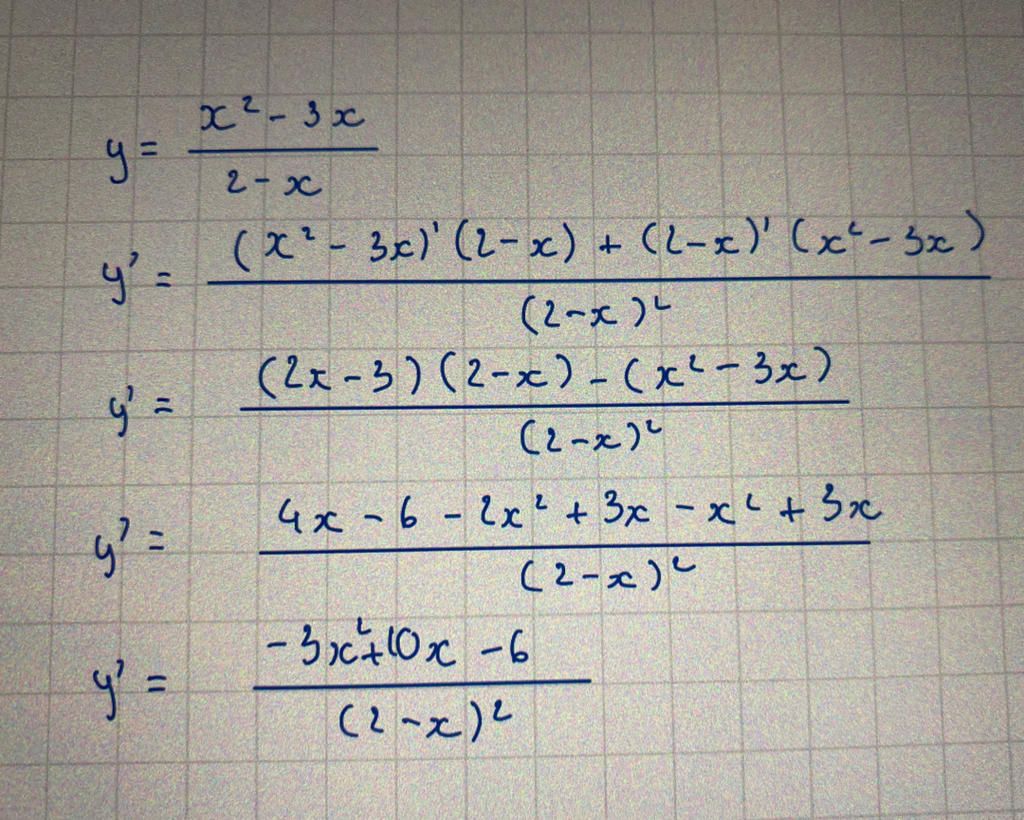 y = (x² - 3x) / (2 - x)
y' = ((x² - 3x)' (2-x) + (2-x)' (x² - 3x)) / (2-x)²
y' = ((2x - 3)(2-x) - (x² - 3x)) / (2-x)²
y' = (4x - 6 - 2x² + 3x - x² + 3x) / (2-x)²
y' = (-3x² + 10x - 6) / (2-x)²